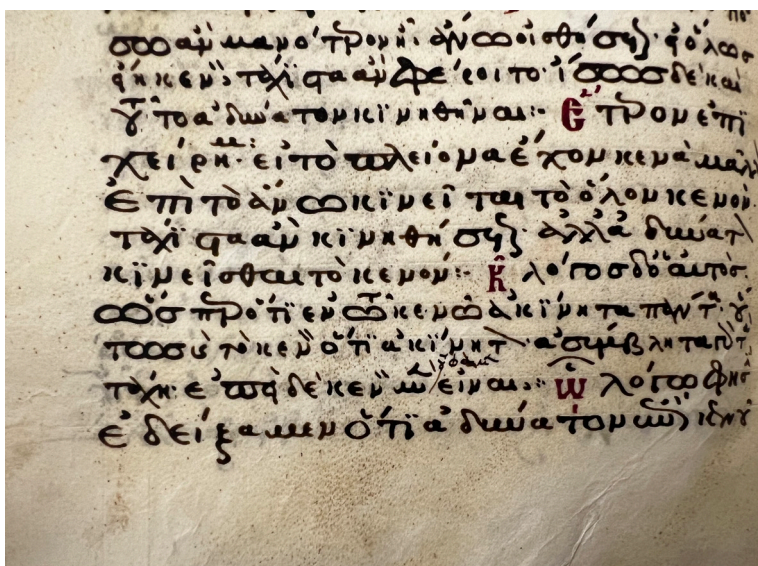 σω ἂν μανότερον ἦ. ἄνω οἰσθήσεται. εἰ ὅλως
ἦ κενὸν, τάχιστα ἂν φέροιτο. ἴσως δὲ καὶ
τοῦτο ἀδύνατον κινηθῆναι:- Ἕτερον ἐπι
χείρημα: εἰ τὸ πλεῖον ἔχον κενὸν μᾶλλον
ἐπὶ τὸ ἄνω κινεῖται τὸ ὅλον κενὸν
τάχιστα ἂν κινηθήσεται. ἀλλ' ἀδύνατον
κινεῖσθαι τὸ κενόν:- κ λόγος δ' ὁ αὐτὸς
ὡς ὅτι ἐν τῶ κενῶ ἀκίνητα πάντα. οὕ
τως καὶ τὸ κενὸν ὅτι ἀκίνητον ἀσύμβλητα γὰρ τὰ
τάχη. ἐπεὶ δὲ κενὸν μὴ εἶναι:- ὧ λόγω φησὶν
ἐδείξαμεν ὅτι ἀδύνατον κενοῦ